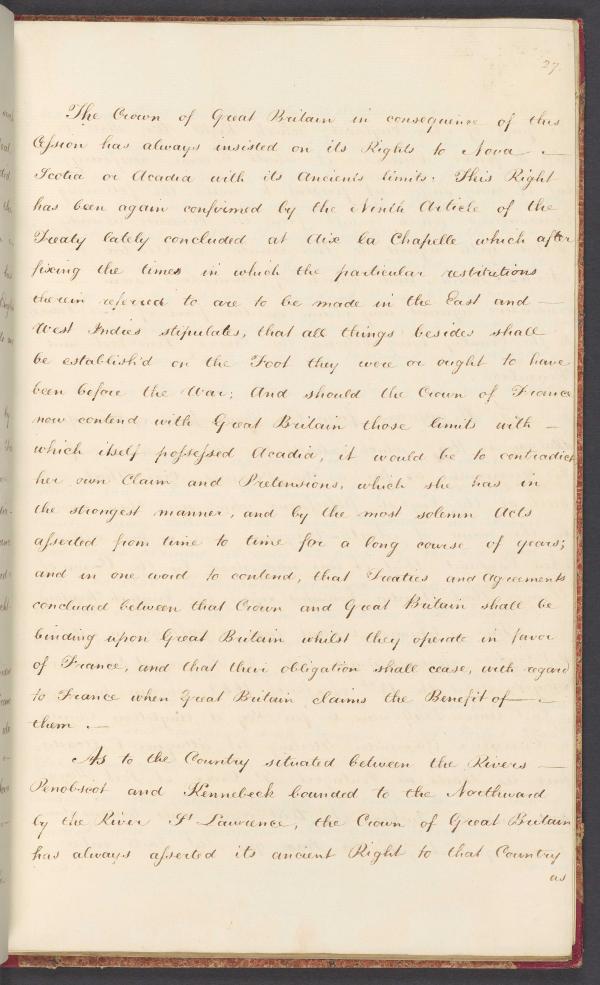 27.
The Crown of Great Britain in consequence of this
Cession has always insisted on its Rights to Nova —
Scotia or Acadia with its Ancients limits. This Right
has been again confirmed by the Ninth Article of the
Treaty lately concluded at Aix la Chapelle which after
fixing the times in which the particular restitutions
therein referred to are to be made in the East and —
West Indies stipulates, that all things besides shall
be establish'd on the Foot they were or ought to have
been before the War; And should the Crown of France
now contend with Great Britain those limits with —
which itself possessed Acadia, it would be to contradict
her own Claim and Pretensions, which she has in
the strongest manner, and by the most solemn Acts
asserted from time to time for a long course of years;
and in one word to contend, that Treaties and Agreements
concluded between that Crown and Great Britain shall be
binding upon Great Britain whilst they operate in favor
of France, and that their obligation shall cease, with regard
to France when Great Britain claims the Benefit of —
them. —
As to the Country situated between the Rivers —
Penobscot and Kennebeck bounded to the Northward
by the River St Lawrence, the Crown of Great Britain
has always asserted its ancient Right to that Country
as